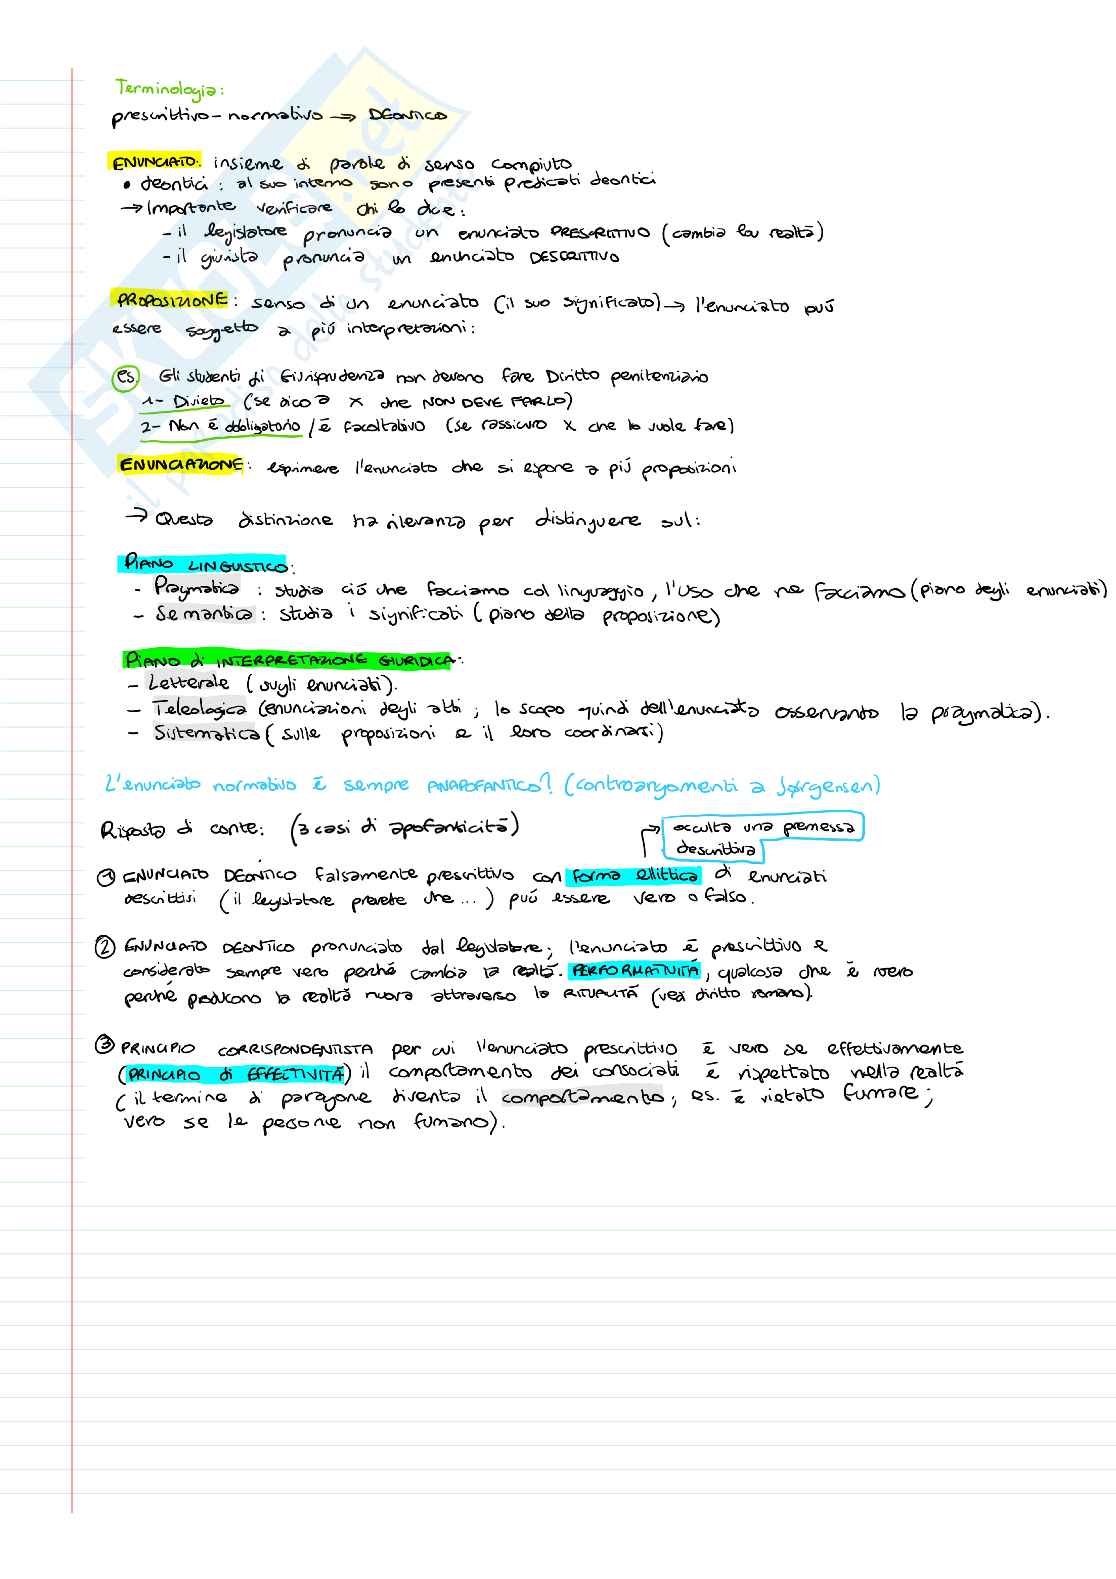 Terminologia:
prescrittivo - normativo → DEONTICO
ENUNCIATO: insieme di parole di senso compiuto
• deontici: al suo interno sono presenti predicati deontici
→ Importante verificare chi lo dice:
- il legislatore pronuncia un enunciato PRESCRITTIVO (cambia la realtà)
- il giurista pronuncia un enunciato DESCRITTIVO
PROPOSIZIONE: senso di un enunciato (il suo significato) → l'enunciato può
essere soggetto a più interpretazioni:
es. Gli studenti di Giurisprudenza non devono fare Diritto penitenziario
1- Divieto (se dico a x che NON DEVE FARLO)
2- Non è obbligatorio / è facoltativo (se rassicuro x che lo vuole fare)
ENUNCIAZIONE: esprimere l'enunciato che si espone a più proposizioni
→ Questa distinzione ha rilevanza per distinguere sul:
PIANO LINGUISTICO:
- Pragmatica: studia ciò che facciamo col linguaggio, l'uso che ne facciamo (piano degli enunciati)
- Semantica: studia i significati (piano della proposizione)
PIANO di INTERPRETAZIONE GIURIDICA:
- Letterale (sugli enunciati).
- Teleologica (enunciazioni degli atti; lo scopo quindi dell'enunciato osservando la pragmatica).
- Sistematica (sulle proposizioni e il loro coordinarsi)
L'enunciato normativo è sempre ANAPOFANTICO? (controargomenti a Jørgensen)
Risposta di conte: (3 casi di apofanticità)
→ occulta una premessa
descrittiva
1 ENUNCIATO DEONTICO falsamente prescrittivo con forma ellittica di enunciati
descrittivi (il legislatore prevede che...) può essere vero o falso.
2 ENUNCIATO DEONTICO pronunciato dal legislatore; l'enunciato è prescrittivo e
considerato sempre vero perché cambia la realtà. PERFORMATIVITÀ, qualcosa che è vero
perché producono la realtà nuova attraverso la RITUALITÀ (vedi diritto romano).
3 PRINCIPIO CORRISPONDENTISTA per cui l'enunciato prescrittivo è vero se effettivamente
(PRINCIPIO di EFFETTIVITÀ) il comportamento dei consociati è rispettato nella realtà
(il termine di paragone diventa il comportamento; es. è vietato fumare;
vero se le persone non fumano).
SKUOLA.net
il paradiso dello studente